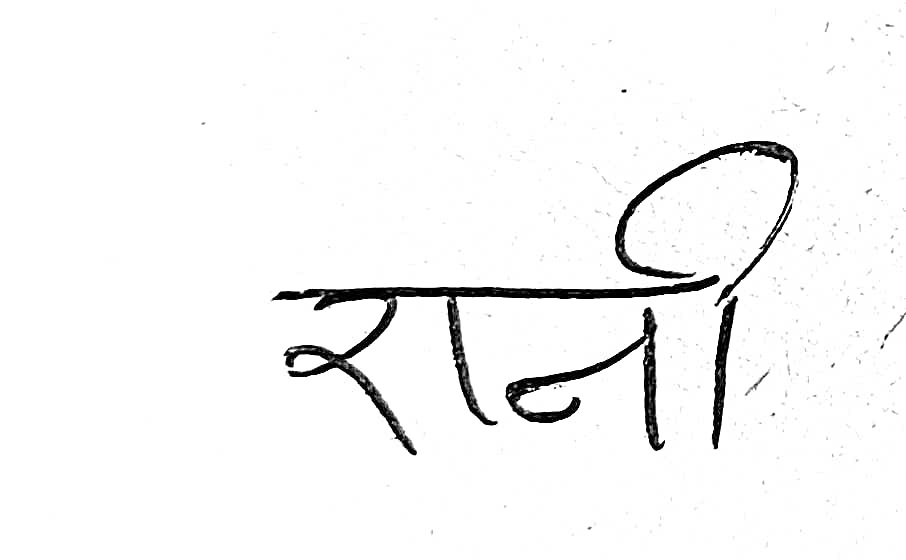 रानी